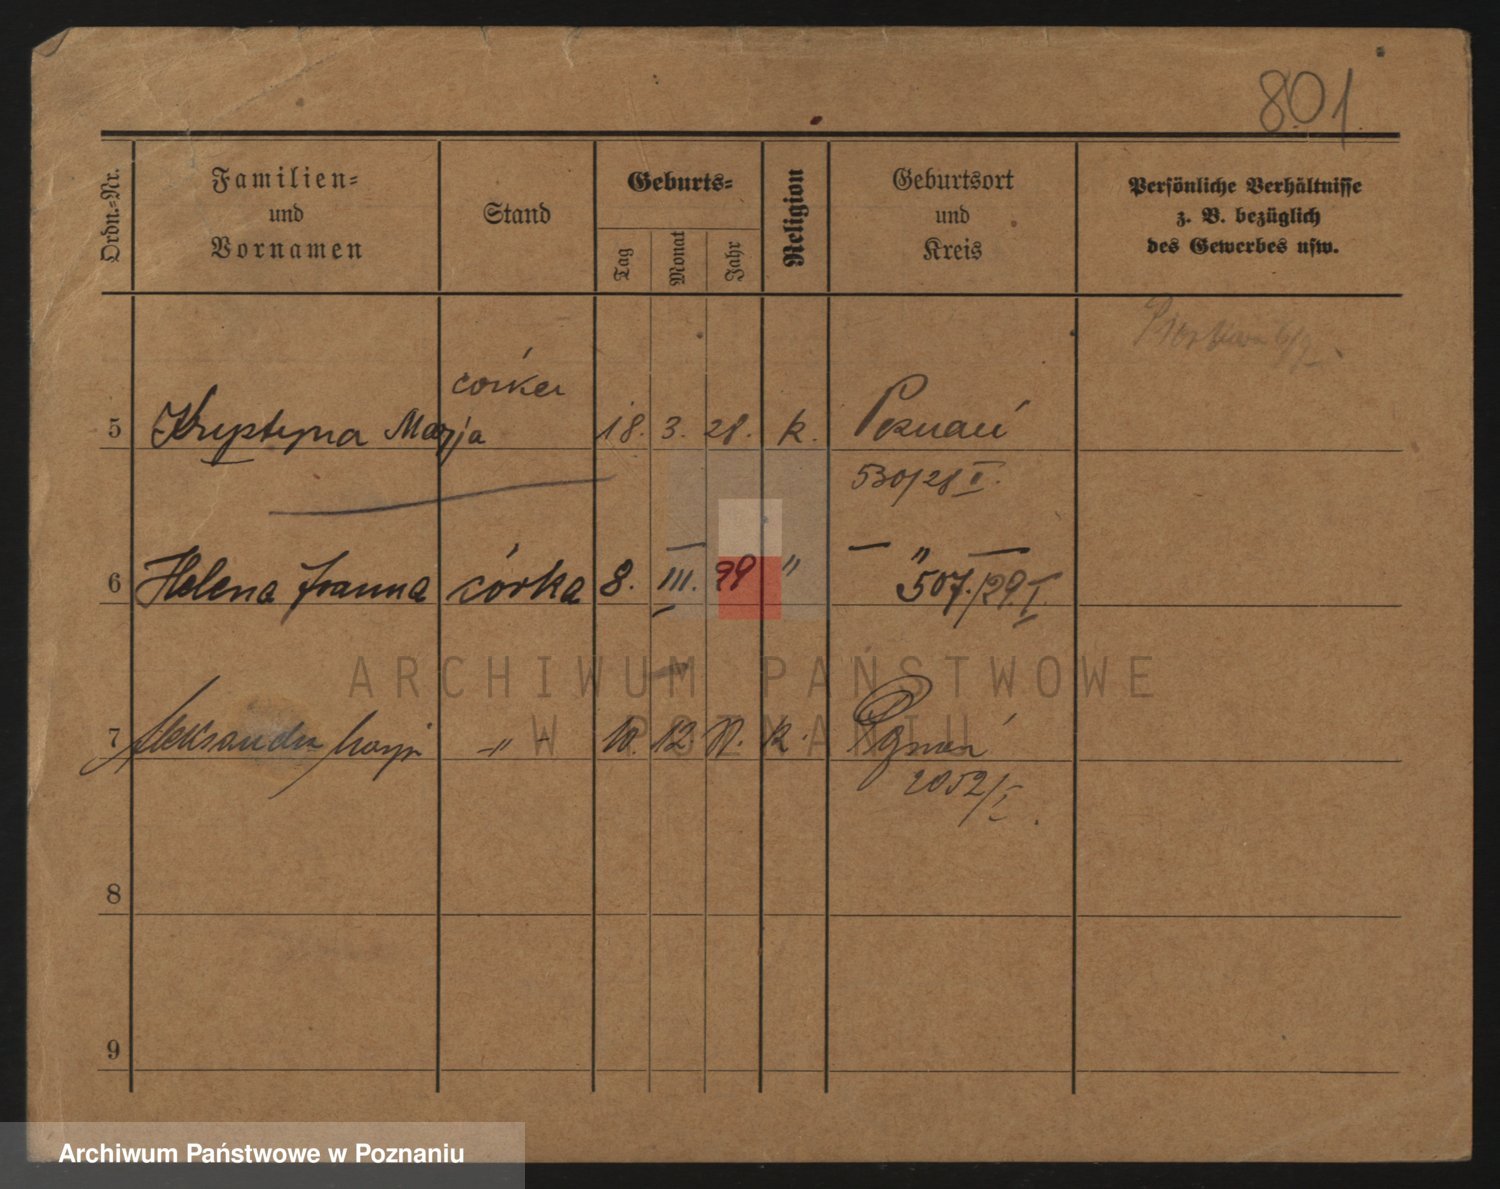 801
Ordn.=Nr.
Familien=
und
Vornamen
Stand
Geburts=
Tag
Monat
Jahr
Religion
Geburtsort
und
Kreis
Persönliche Verhältnisse
z. B. bezüglich
des Gewerbes usw.
córka
5 Krystyna Marja 18. 3. 28. k. Poznań
530/28 II.
6 Helena Joanna córka 8. III. 29 " — " —
507./29. I.
ARCHIWUM PAŃSTWOWE
W POZNANIU
7 Aleksandra Marja -"- 10. 12. k. Poznań
2052/I.
8
9
Archiwum Państwowe w Poznaniu